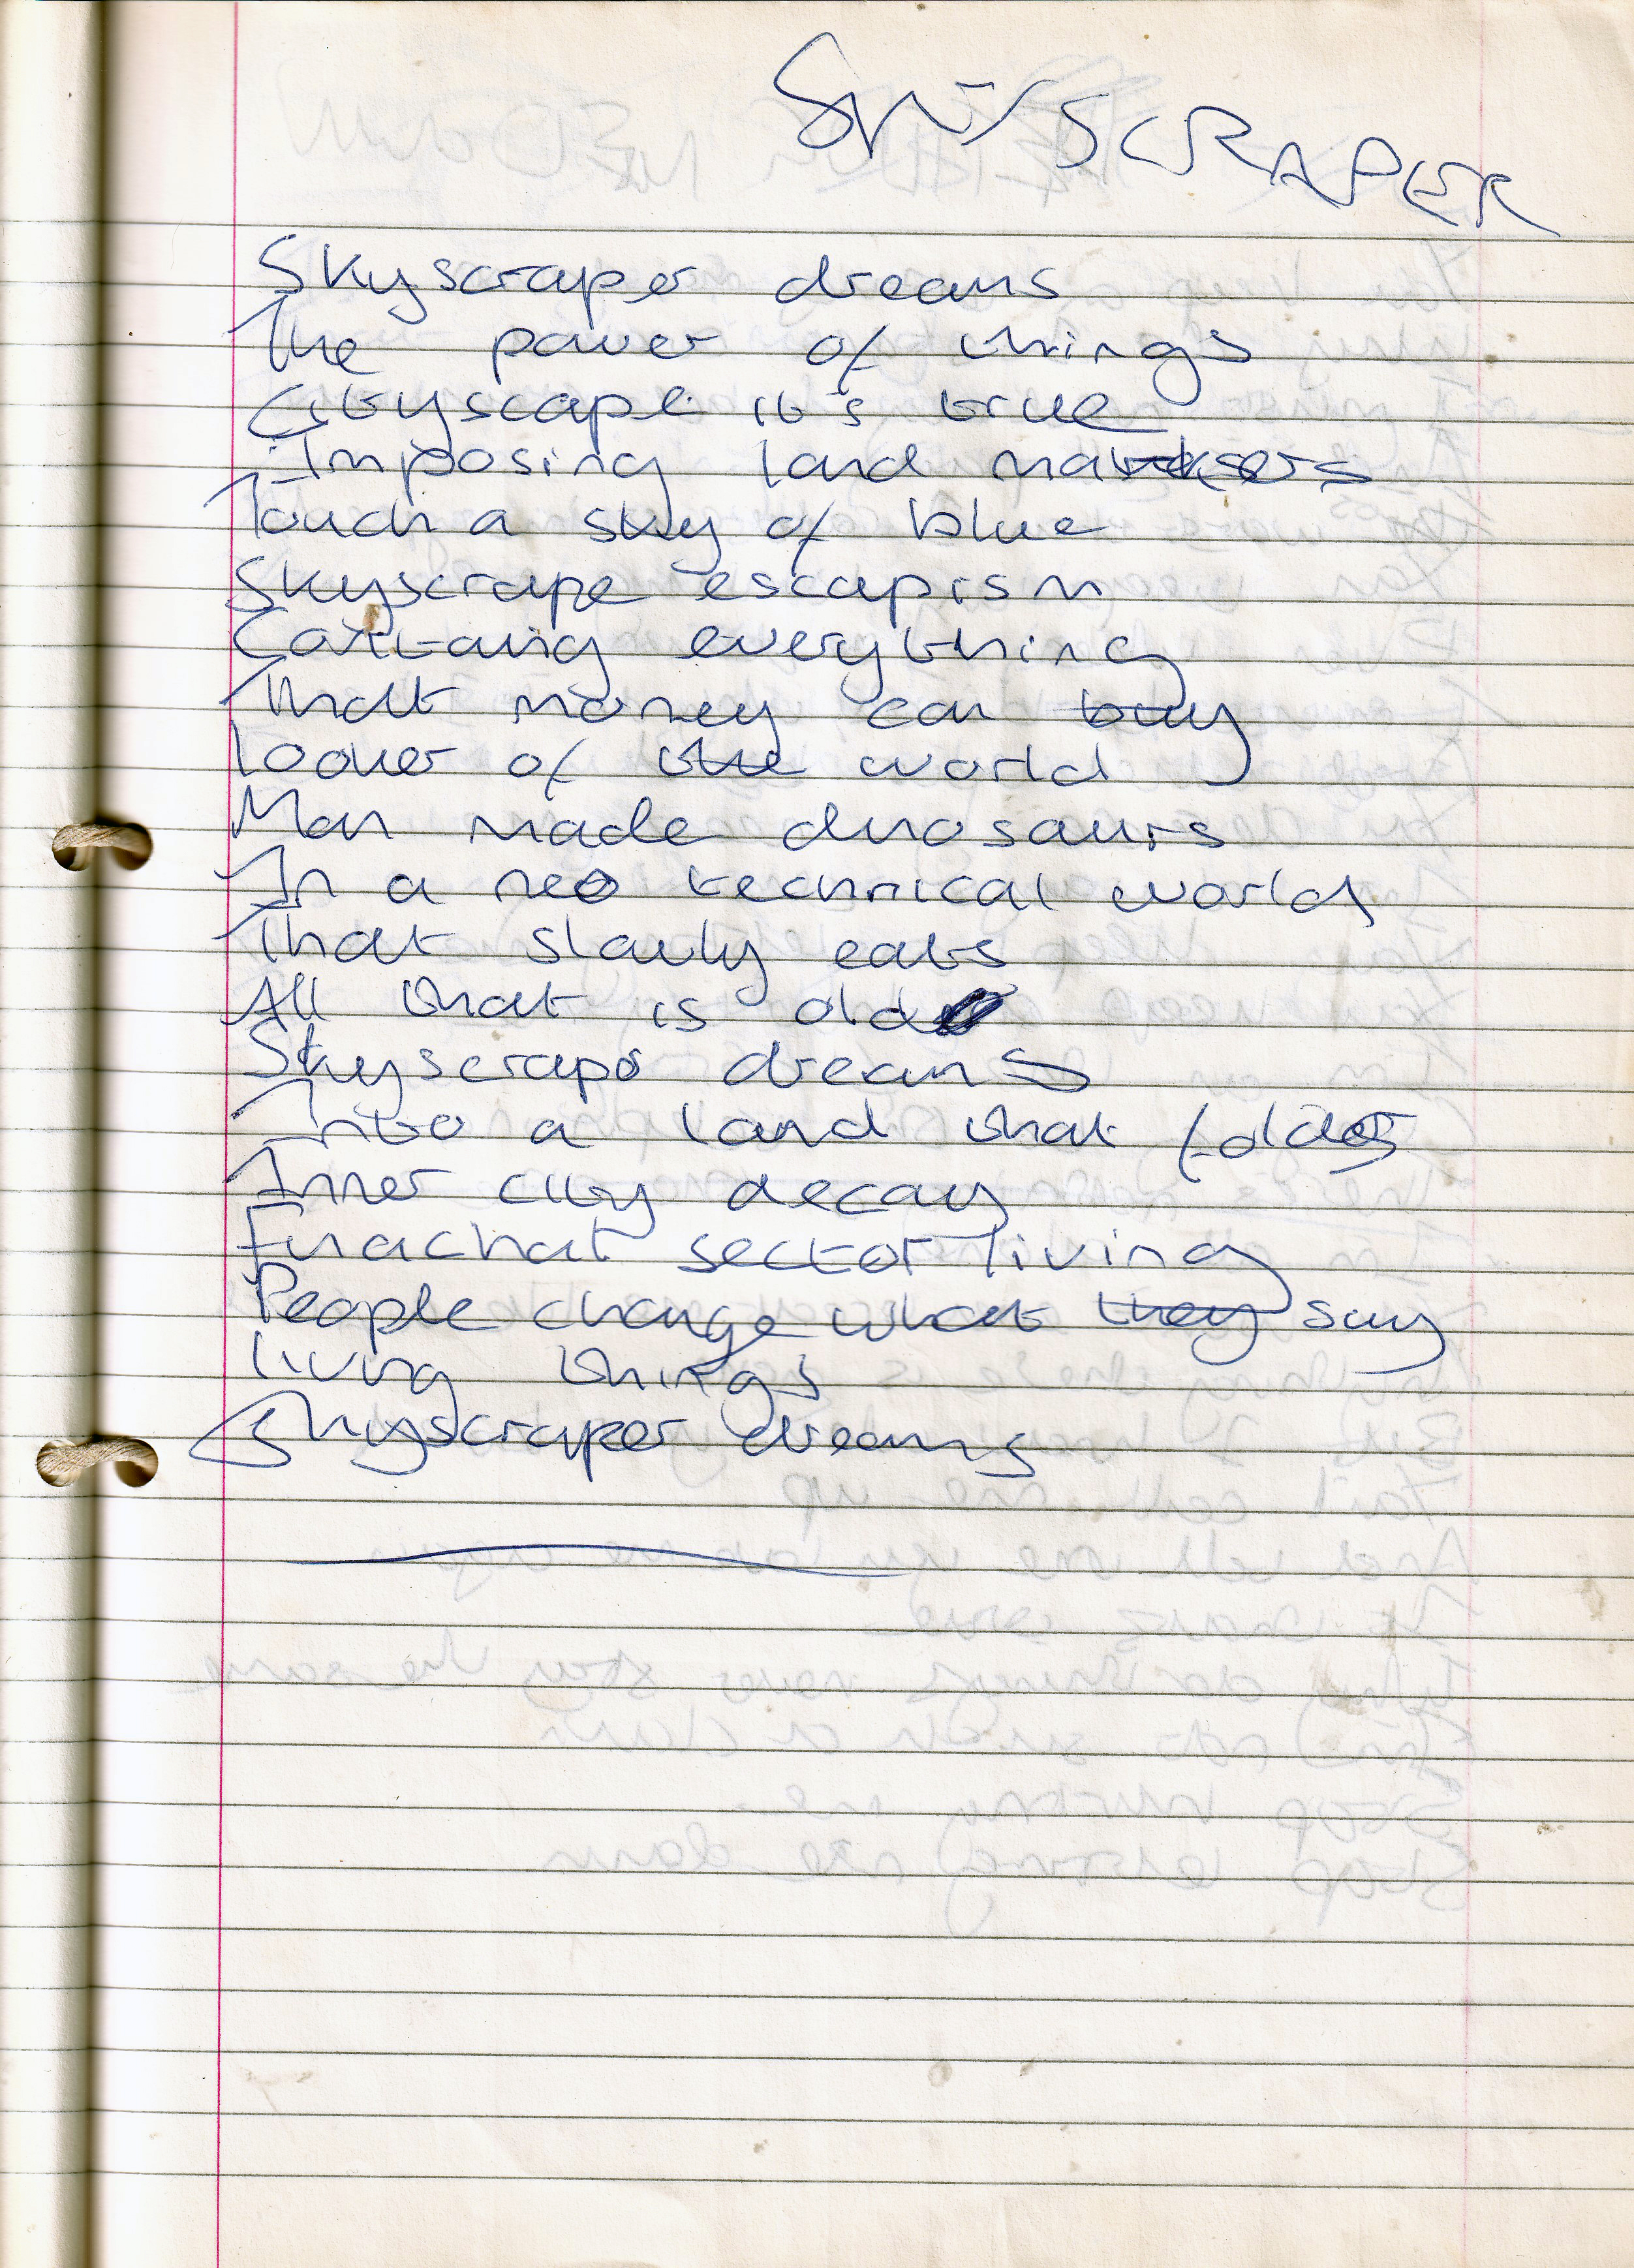 SKYSCRAPER
Skyscraper dreams
The power of things
Cityscape it's true
Imposing land markers
Touch a sky of blue
Skyscrape escapism
everything
That money can buy
of the world
Man made dinosaurs
In a neo technical world
That slowly eats
All that is old
Skyscraper dreams
Into a land that folds
Inner city decay
sector living
People change what they say
living things
Skyscraper dreams